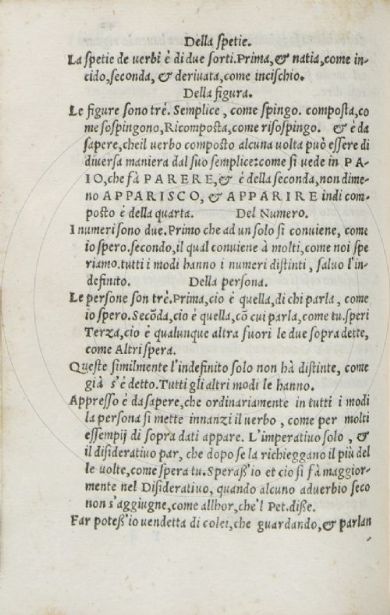 Della spetie.
La spetie de verbi è di due sorti. Prima, & natia, come in-
cido, seconda, & deriuata, come incischio.
Della figura.
Le figure sono trè. Semplice, come spingo. composta, co
me sospingono, Ricomposta, come risospingo. & è da
sapere, che il verbo composto alcuna volta può essere di
diuersa maniera dal suo semplice: come si vede in PA-
IO, che fà PARERE, & è della seconda, non dime-
no APPARISCO, & APPARIRE indi com-
posto è della quarta. Del Numero.
I numeri sono due. Primo che ad un solo si conuiene, come
io spero. secondo, il qual conuiene à molti, come noi spe
riamo. tutti i modi hanno i numeri distinti, saluo l'in-
definito. Della persona.
Le persone son trè. Prima, cio è quella, di chi parla, come
io spero. Secōda, cio è quella, cō cui parla, come tu. speri
Terza, cio è qualunque altra fuori le due sopra dette,
come Altri spera.
Queste similmente l'indefinito solo non hà distinte, come
già s'è detto. Tutti gli altri modi le hanno.
Appresso è da sapere, che ordinariamente in tutti i modi
la persona si mette innanzi il verbo, come per molti
essempij di sopra dati appare. L'imperatiuo solo, &
il disideratiuo par, che dopo se la richieggano il più del
le volte, come spera tu. Speraß'io et cio si fà maggior-
mente nel Disideratiuo, quando alcuno aduerbio seco
non s'aggiugne, come allhor, che'l Pet. diße.
Far poteß'io uendetta di colei, che guardando, & parlan